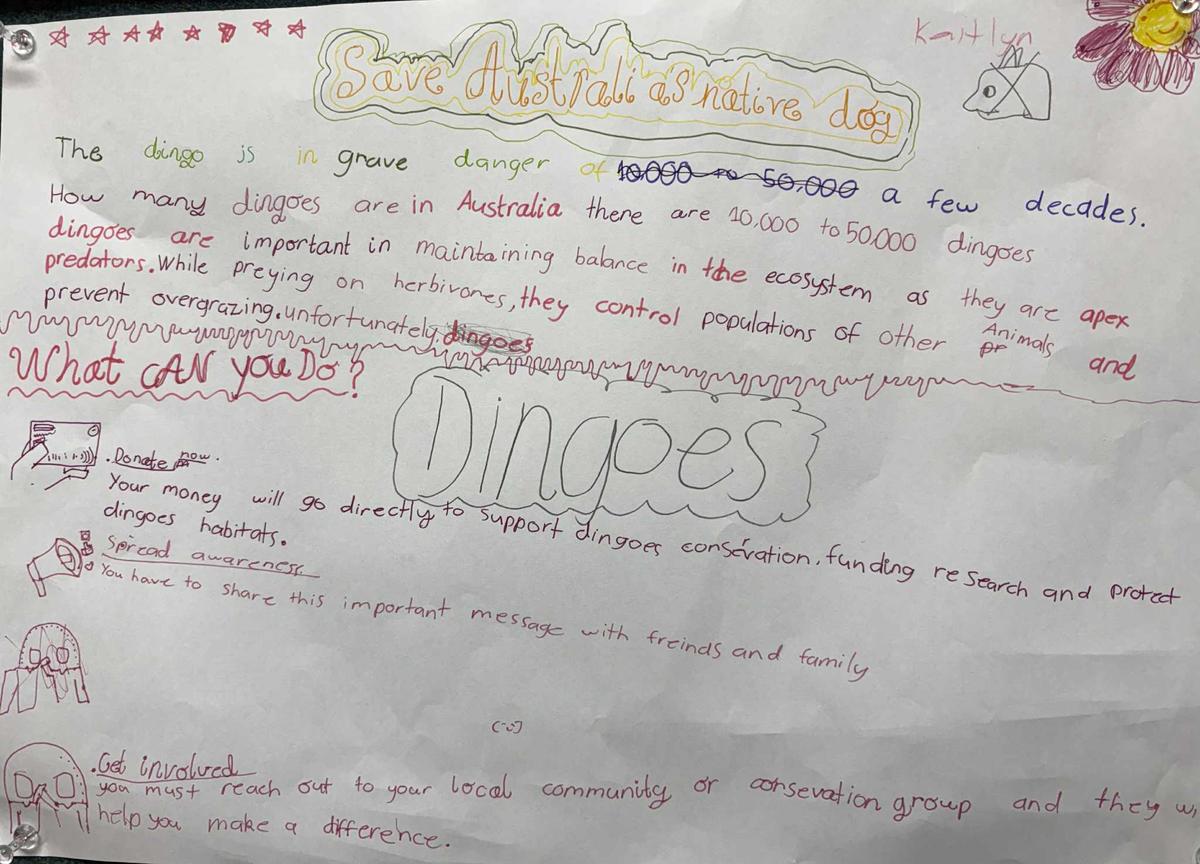 Kaitlyn
Save Australias native dog
The dingo is in grave danger of 10.000 to 50.000 a few decades.
How many dingoes are in Australia there are 10,000 to 50.000 dingoes
dingoes are important in maintaining balance in the ecosystem as they are apex
predators. While preying on herbivores, they control populations of other pr Animals and
prevent overgrazing. unfortunately dingoes
What cAN you Do?
Dingoes
. Donate now.
Your money will go directly to support dingoes consérvation. funding research and protect
dingoes habitats.
Spread awareness
You have to share this important message with freinds and family
(:)
. Get involved
you must reach out to your local community or consevation group and they wi
help you make a difference.